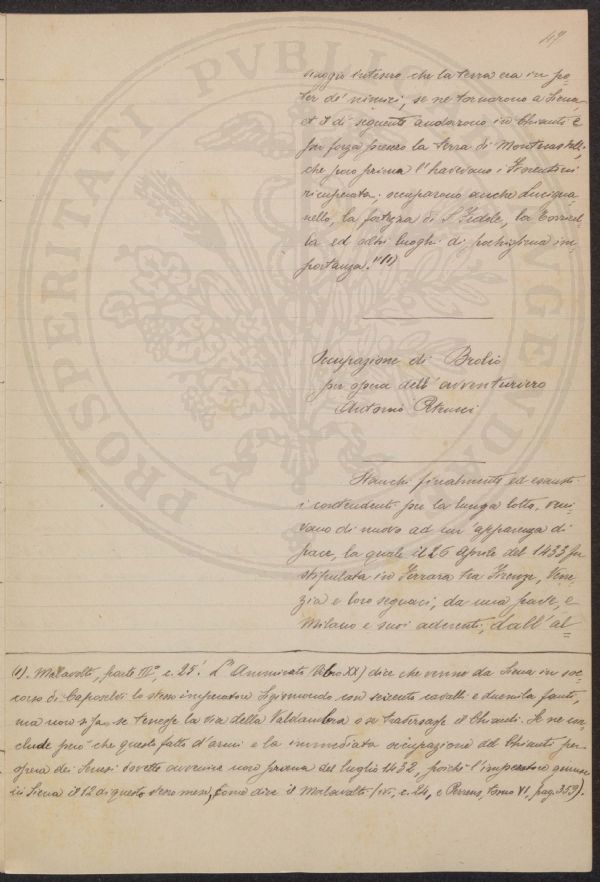 47
viaggio inteso che la terra era in po=
ter de' nimici, se ne tornarono a Siena,
et il dì seguente andarono in Chianti e
per forza presero la terra di
che poco prima l'havevano i Fiorentini
ricuperata; occuparono anche Lucigna=
nello, la fortezza di S. Fedele, la Torricel=
la ed altri luoghi di pochissima im=
portanza." (1)
Occupazione di Brolio
per opera dell'avventuriero
Antonio Petrucci
Stanchi finalmente ed esausti
i contendenti per la lunga lotta, veni=
vano di nuovo ad un'apparenza di
pace, la quale il 26 Aprile del 1433 fu
stipulata in Ferrara tra Firenze, Vene=
zia e loro seguaci, da una parte, e
Milano e suoi aderenti, dall'al=
(1). Malavolti, parte III^a, c. 25^t. L'Ammirato (libro XX) dice che venne da Siena in soc=
corso di Caposelvi lo stesso imperatore Sigismondo con seicento cavalli e duemila fanti,
ma non si sa se tenesse la via della Valdambra o se traversasse il Chianti. Se ne con=
clude però che questo fatto d'armi e la immediata occupazione del Chianti per
opera dei Senesi dovette avvenire non prima del luglio 1432, poichè l'imperatore giunse
in Siena il 12 di questo stesso mese, come dice il Malavolti (ivi, c. 24, e Perrens, tomo VI, pag. 353).
PROSPERITATI PUBLICAE AUGENDAE